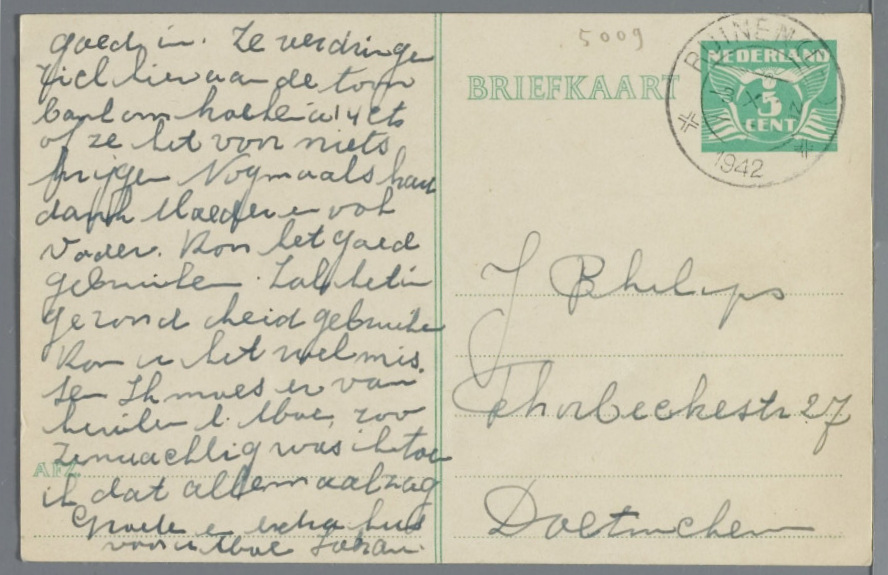 goed in. Ze verdringen
zich hier aan de toon
bank om koekjes à 14 cts
of ze het voor niets
krijgen Nogmaals har
dank Moeder en ook
Vader. Kon het goed
gebruiken. Zal het in
gezondheid gebruiken
Kon u het wel mis
sen Ik moes er van
huilen l. Moe, zoo
zenuachtig was ik toe
ik dat allemaal zag
Groete en extra kus
voor u Moe Johan.
AFZ.
5009
BRIEFKAART
NEDERLAND
5
CENT
RUINEN
1942
J Philips
Thorbeckestr 27
Doetinchem